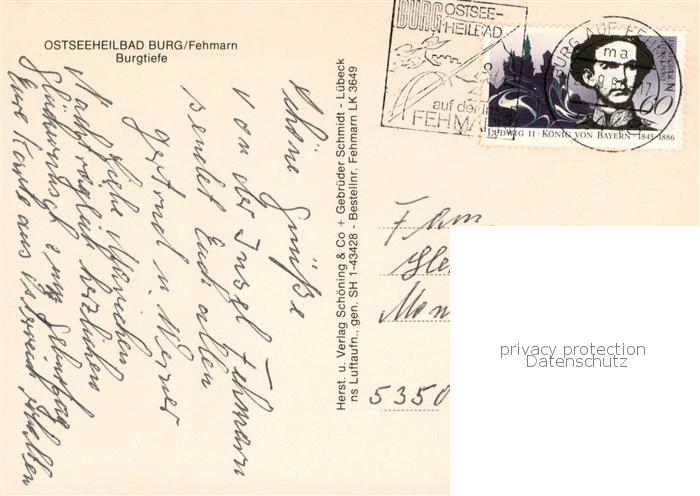 OSTSEEHEILBAD BURG/Fehmarn
Burgtiefe
Schöne Grüße
von der Insel Fehmarn
sendet Euch allen
Gertrud u. Werner
Liebe
Nachträglich herzlichen
Glückwunsch zum Geburtstag
Eure Karte aus erhalten
Herst. u. Verlag Schöning & Co + Gebrüder Schmidt - Lübeck
ns Luftaufn., gen. SH 1-43428 - Bestellnr. Fehmarn LK 3649
BURG OSTSEE-
HEILBAD
auf der
FEHMA
BURG AUF FEHMARN
ma
60
LUDWIG II · KÖNIG VON BAYERN · 1845-1886
Fam.
5350
privacy protection
Datenschutz